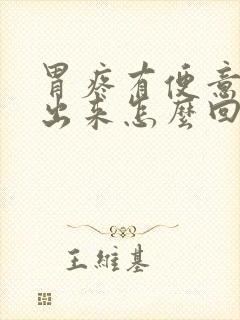 胃疼有便意
出来怎麼回
王維基